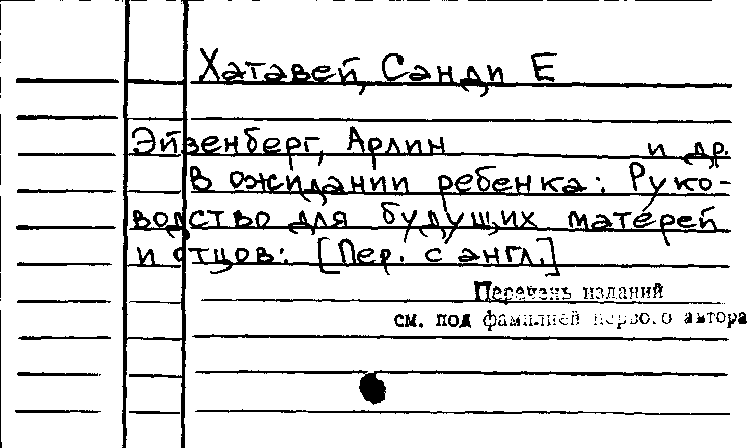 Хатавей, Санди Е
Эйзенберг, Арлин и др.
В ожидании ребенка: Руко-
водство для будущих матерей
и отцов: [Пер. с англ.]
Перечень изданий
см. под фамилией первого автора